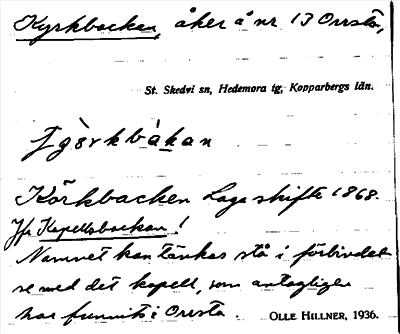 Kyrkbackan, åker å nr 13 Orrsta,
St. Skedvi sn, Hedemora tg, Kopparbergs län.
Körkbacken Laga skifte 1868.
Jfr Kapellsbackan!
Namnet kan tänkas stå i förbindel
se med det kapell, som antagligen
har funnits i Orrsta. OLLE HILLNER, 1936.